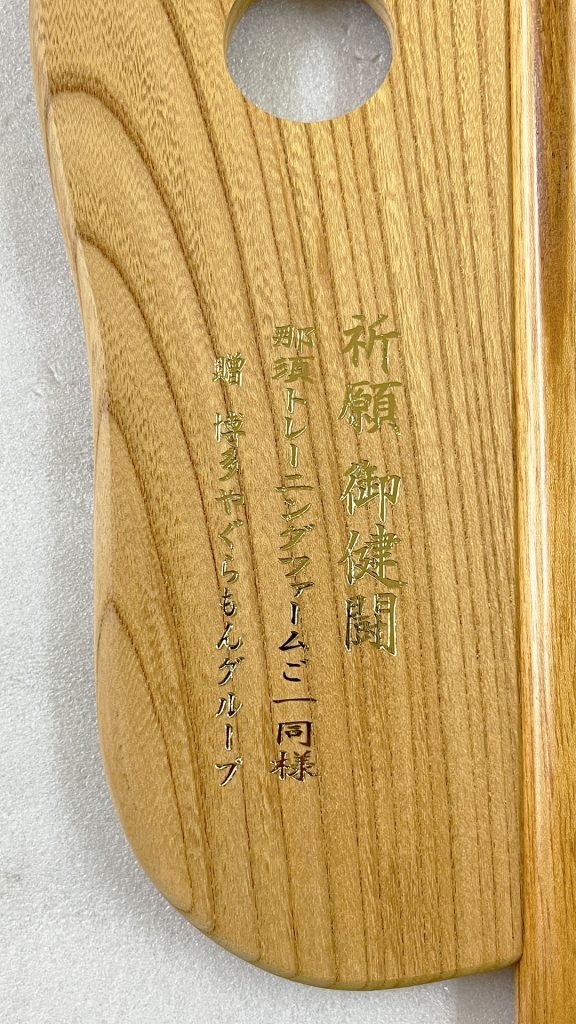 祈願 御健闘
那須トレーニングファームご一同様
贈 博多やぐらもんグループ